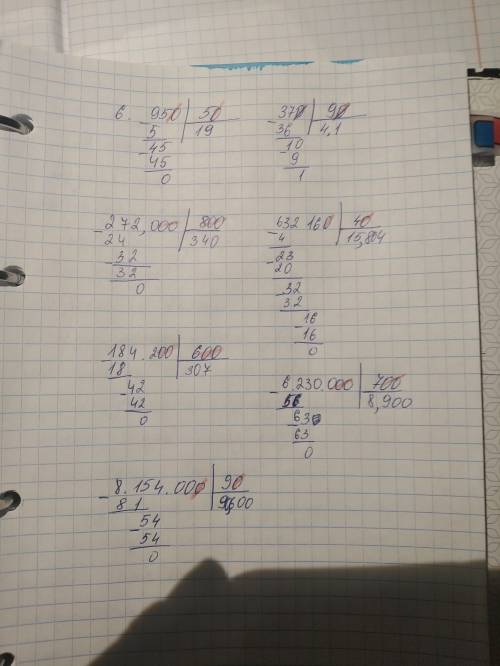 6. 950 | 50
5 | 19
45
45
0
370 | 90
36 | 4,1
10
9
1
272,000 | 800
24 | 340
32
32
0
632 160 | 40
4 | 15,804
23
20
32
32
16
16
0
184.200 | 600
18 | 307
42
42
0
6.230.000 | 700
56 | 8,900
630
63
0
8.154.000 | 90
81
54
54
0